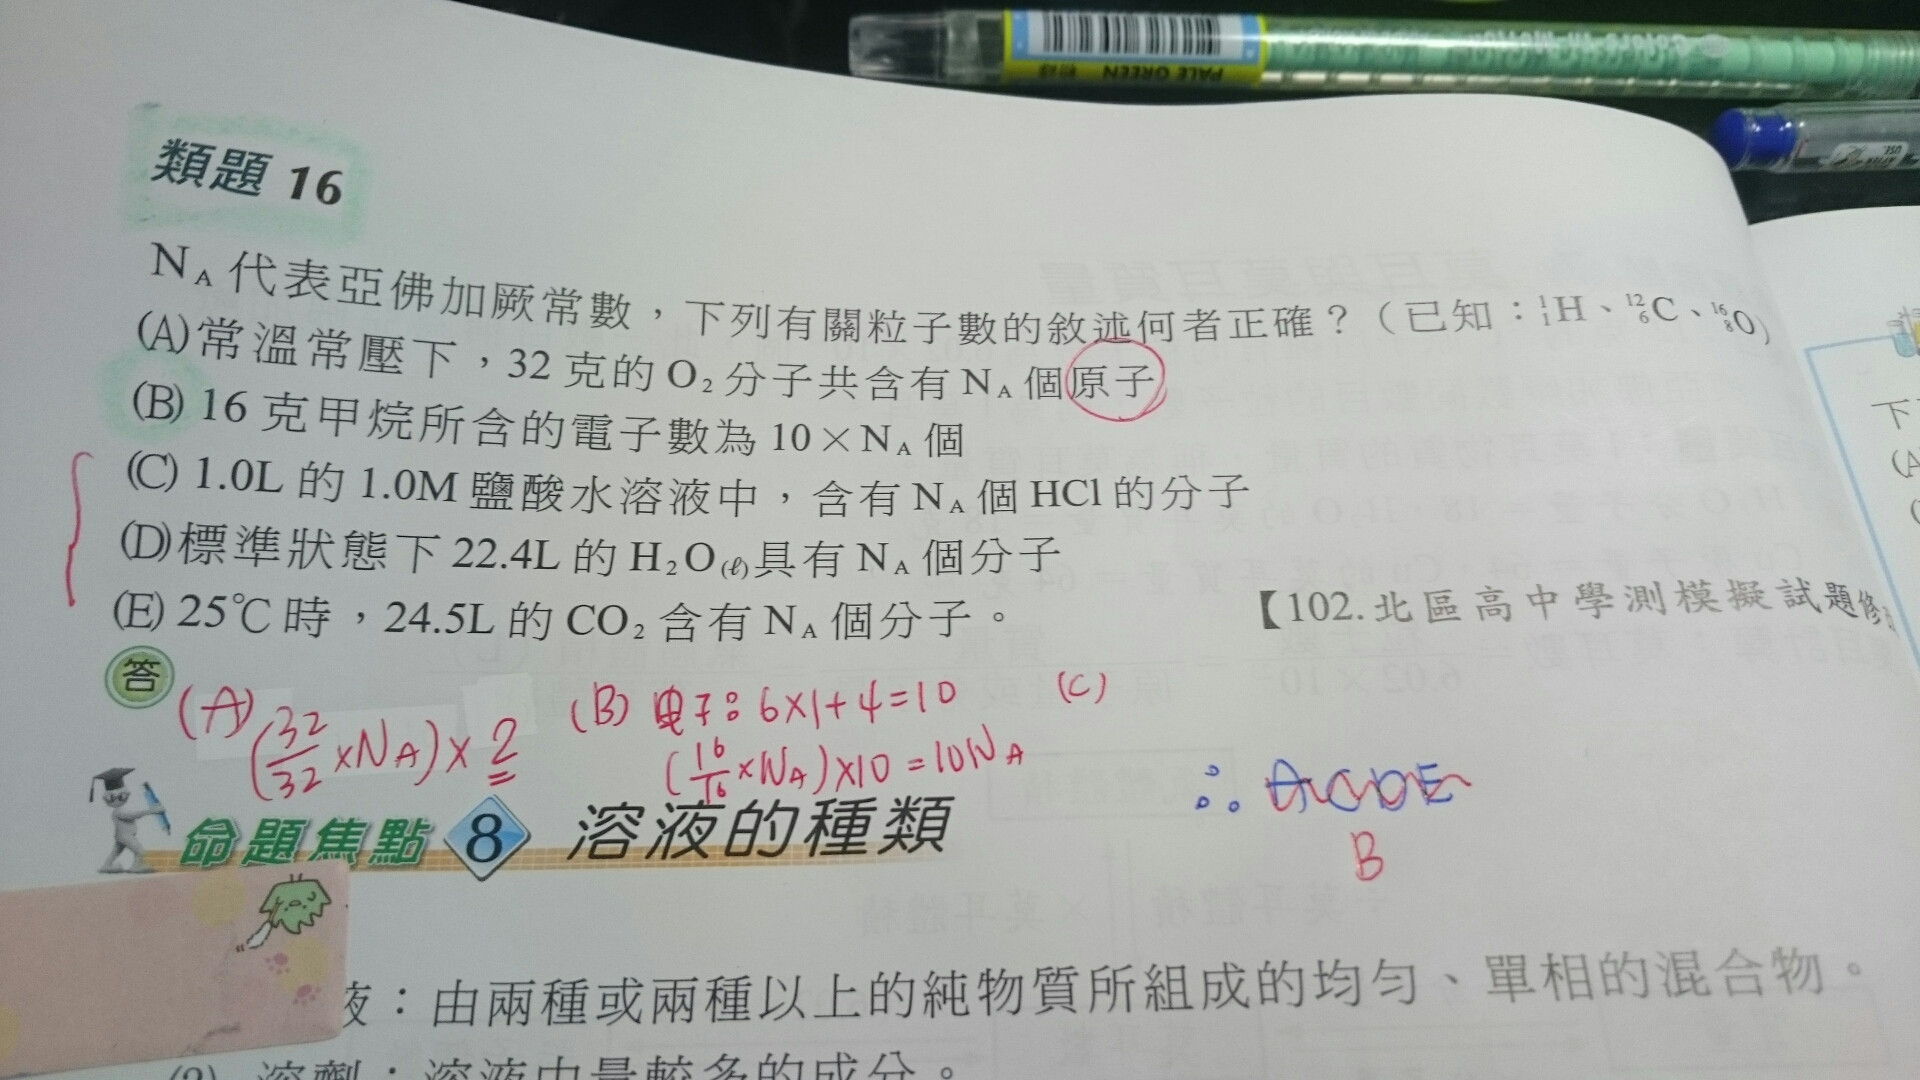 PALE GREEN
類題 16
N A 代表亞佛加厥常數，下列有關粒子數的敘述何者正確？（已知：¹₁H、¹²₆C、¹⁶₈O）
(A)常溫常壓下，32 克的 O₂ 分子共含有 N A 個原子
(B) 16 克甲烷所含的電子數為 10×N A 個
(C) 1.0L 的 1.0M 鹽酸水溶液中，含有 N A 個 HCl 的分子
(D)標準狀態下 22.4L 的 H₂O(ℓ)具有 N A 個分子
(E) 25℃ 時，24.5L 的 CO₂ 含有 N A 個分子。
【102.北區高中學測模擬試題修
答
(A) (32/32 ×N A)×2
(B) 电子：6×1+4=10
(16/16 ×N A)×10 =10N A
(C)
∴ ACDE
B
命題焦點 8 溶液的種類
液：由兩種或兩種以上的純物質所組成的均勻、單相的混合物。
(2) 溶劑：溶液中量較多的成分。
下
(A
(